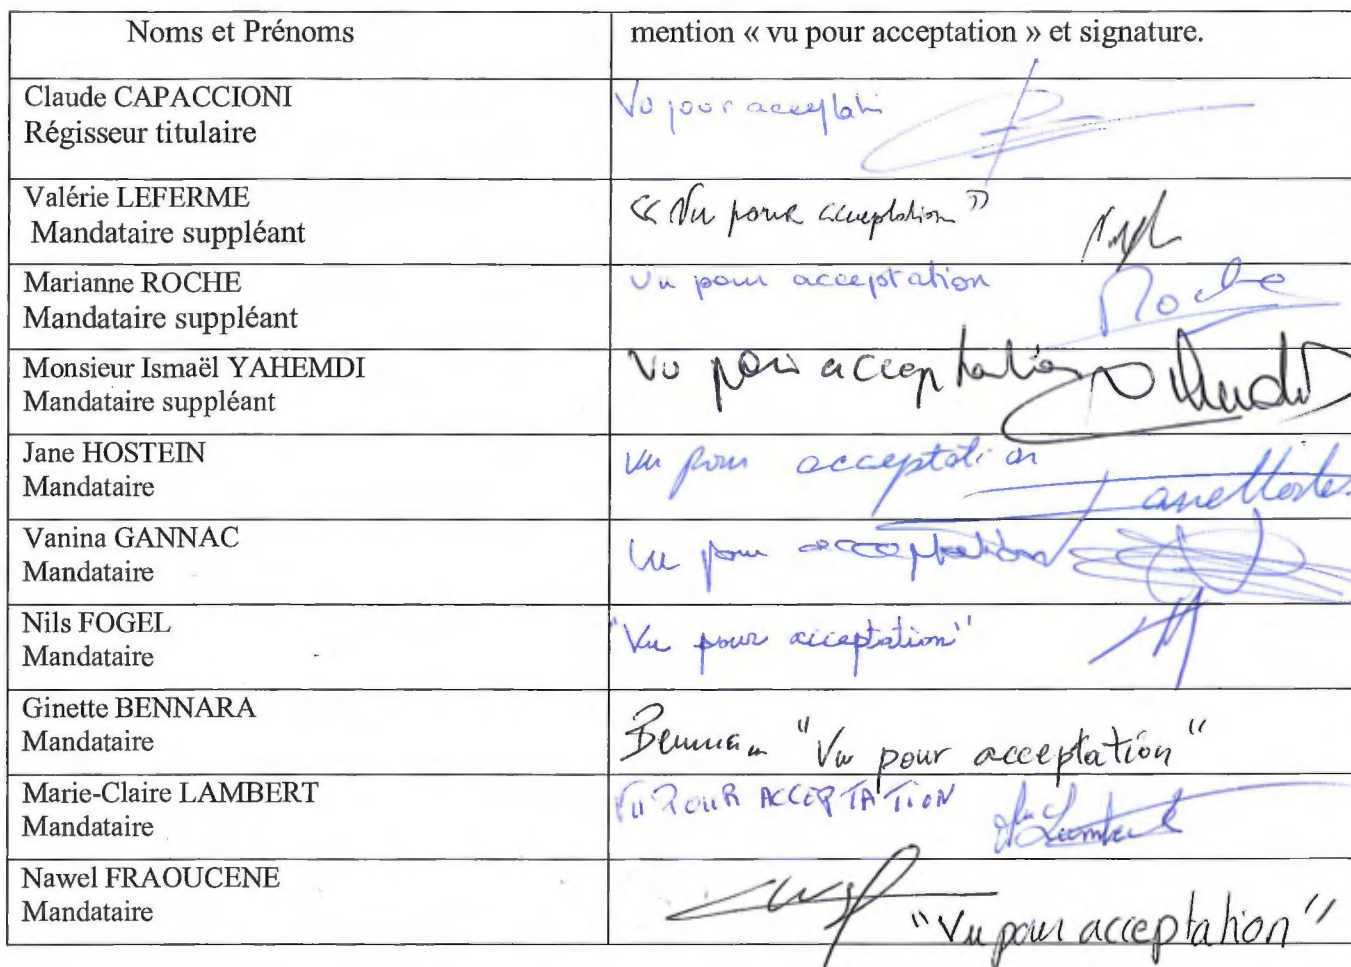 Noms et Prénoms
mention « vu pour acceptation » et signature.
Claude CAPACCIONI
Régisseur titulaire
Vu pour acceptati
Valérie LEFERME
Mandataire suppléant
« Vu pour acceptation »
Marianne ROCHE
Mandataire suppléant
Vu pour acceptation
Roche
Monsieur Ismaël YAHEMDI
Mandataire suppléant
Vu pour acceptation
Jane HOSTEIN
Mandataire
Vu pour acceptation
Vanina GANNAC
Mandataire
Vu pour acceptation
Nils FOGEL
Mandataire
"Vu pour acceptation"
Ginette BENNARA
Mandataire
"Vu pour acceptation"
Marie-Claire LAMBERT
Mandataire
VU POUR ACCEPTATION
Lambert
Nawel FRAOUCENE
Mandataire
"Vu pour acceptation"